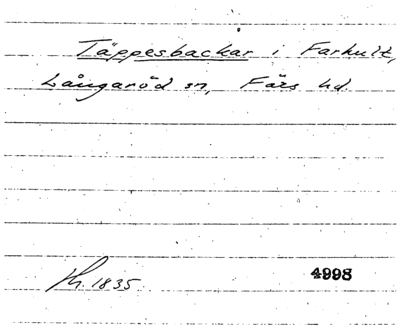 Täppesbackar i Farhult,
Långaröd sn, Färs hd.
Th. 1835.
4998